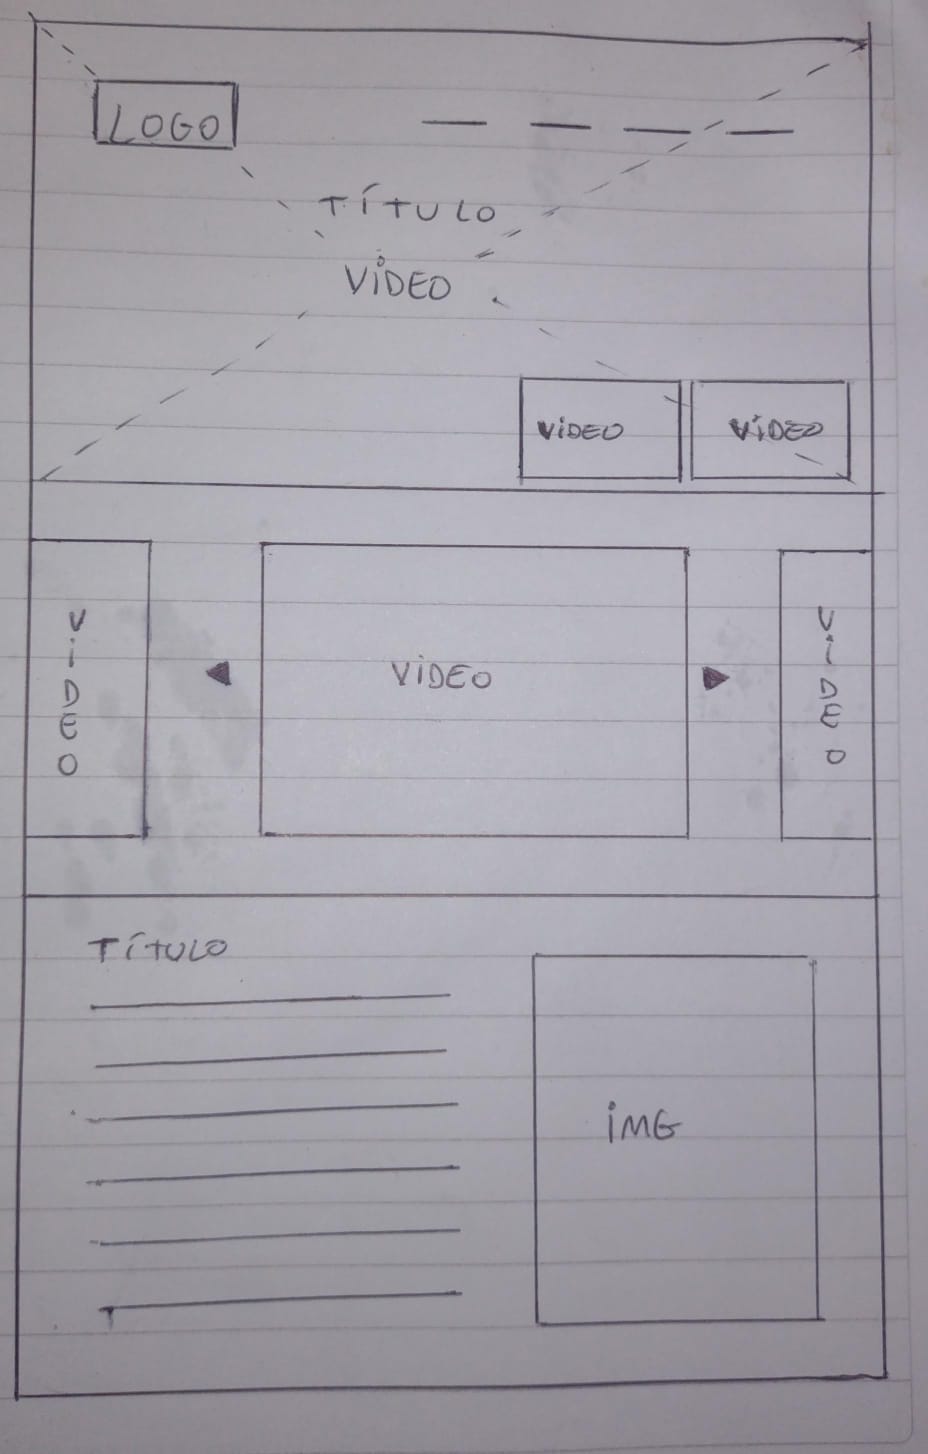 LOGO
TÍTULO
VIDEO
VIDEO
VIDEO
VIDEO
VIDEO
VIDEO
TÍTULO
IMG